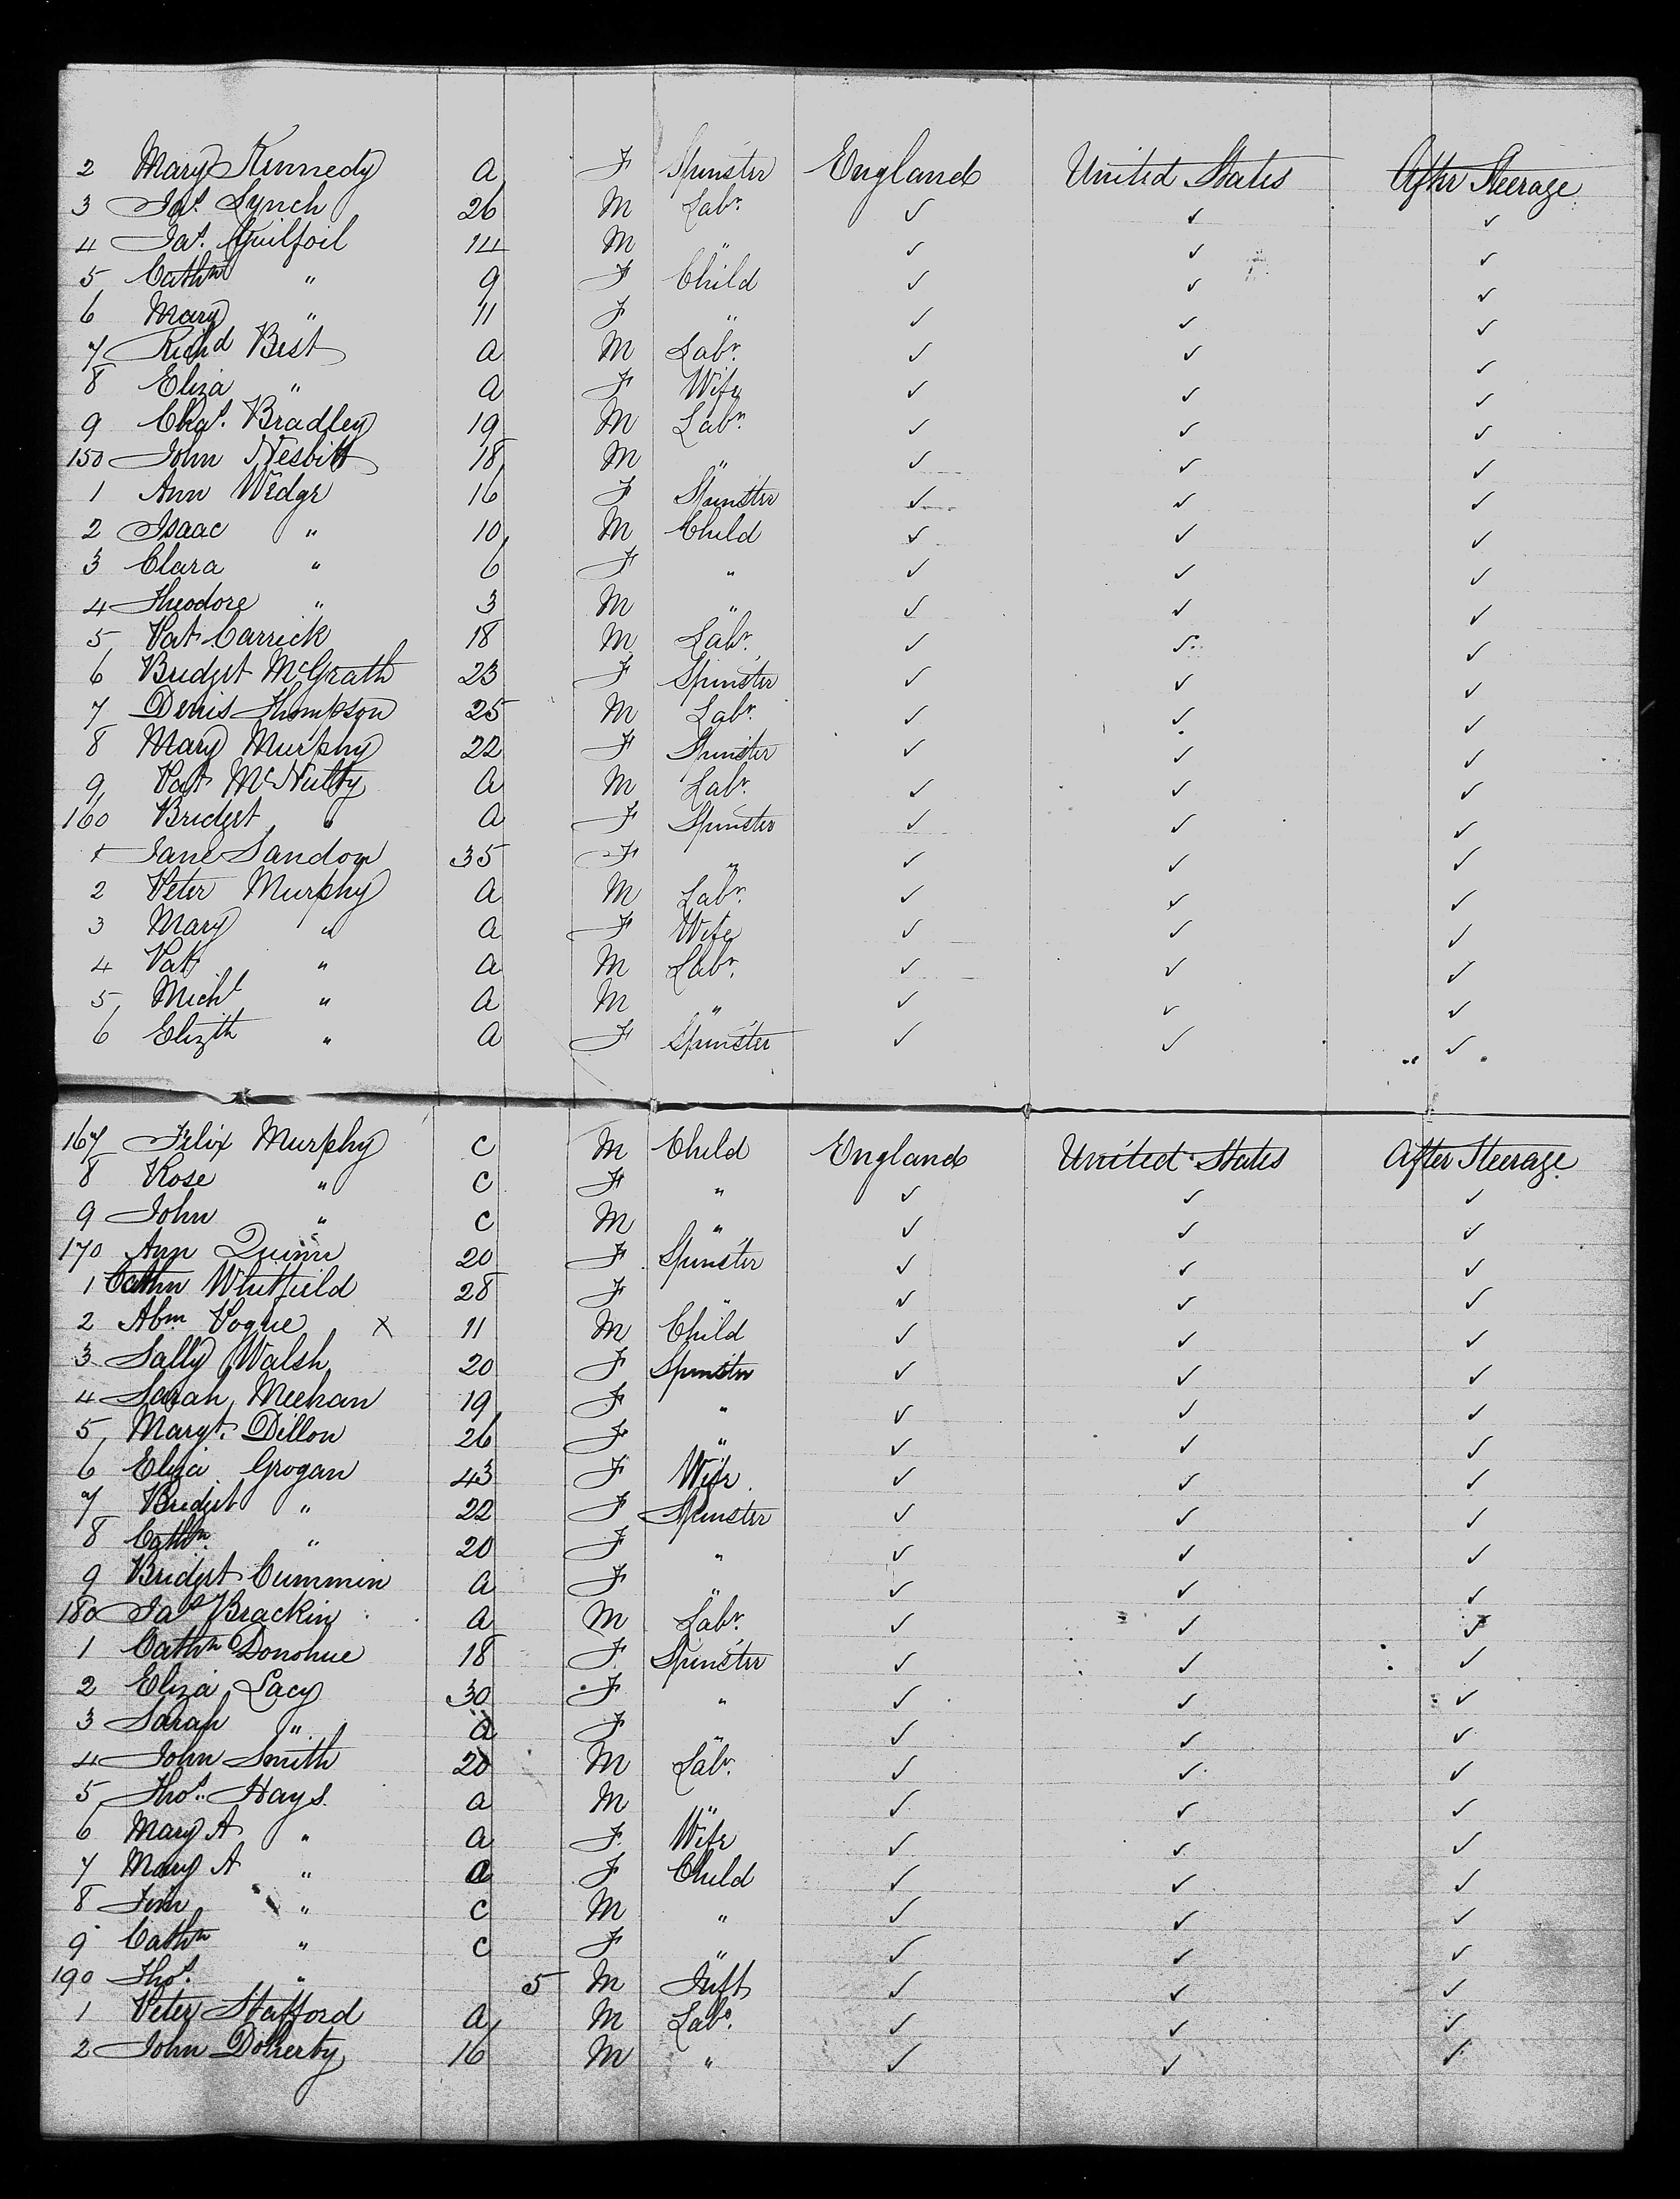 2 Mary Kennedy a F Spinster England United States After Steerage
3 Jas. Lynch 26 M Labr. ✓ ✓ ✓
4 Jas. Guilfoil 14 M " ✓ ✓ ✓
5 Cathn " 9 F Child ✓ ✓ ✓
6 Mary " 11 F " ✓ ✓ ✓
7 Richd Best a M Labr. ✓ ✓ ✓
8 Eliza " a F Wife ✓ ✓ ✓
9 Chas. Bradley 19 M Labr. ✓ ✓ ✓
150 John Nesbitt 18 M " ✓ ✓ ✓
1 Ann Wedge 16 F Spinster ✓ ✓ ✓
2 Isaac " 10 M Child ✓ ✓ ✓
3 Clara " 6 F " ✓ ✓ ✓
4 Theodore " 3 M " ✓ ✓ ✓
5 Pat Carrick 18 M Labr. ✓ ✓ ✓
6 Bridget McGrath 23 F Spinster ✓ ✓ ✓
7 Denis Thompson 25 M Labr. ✓ ✓ ✓
8 Mary Murphy 22 F Spinster ✓ ✓ ✓
9 Pat McNulty a M Labr. ✓ ✓ ✓
160 Bridget " a F Spinster ✓ ✓ ✓
1 Jane Sandon 35 F " ✓ ✓ ✓
2 Peter Murphy a M Labr. ✓ ✓ ✓
3 Mary " a F Wife ✓ ✓ ✓
4 Pat " a M Labr. ✓ ✓ ✓
5 Michl " a M " ✓ ✓ ✓
6 Elizth " a F Spinster ✓ ✓ ✓
167 Felix Murphy c M Child England United States After Steerage
8 Rose " c F " ✓ ✓ ✓
9 John " c M " ✓ ✓ ✓
170 Ann Quinn 20 F Spinster ✓ ✓ ✓
1 Cathn Whitfield 28 F " ✓ ✓ ✓
2 Abm Pogue x 11 M Child ✓ ✓ ✓
3 Sally Walsh 20 F Spinster ✓ ✓ ✓
4 Sarah Meehan 19 F " ✓ ✓ ✓
5 Margt. Dillon 26 F " ✓ ✓ ✓
6 Eliza Grogan 43 F Wife ✓ ✓ ✓
7 Bridget " 22 F Spinster ✓ ✓ ✓
8 Cathn. " 20 F " ✓ ✓ ✓
9 Bridget Cummin a F " ✓ ✓ ✓
180 Jas Brackin a M Labr. ✓ ✓ ✓
1 Cathn Donohue 18 F Spinster ✓ ✓ ✓
2 Eliza Lacy 30 F " ✓ ✓ ✓
3 Sarah " a F " ✓ ✓ ✓
4 John Smith 20 M Labr. ✓ ✓ ✓
5 Thos. Hays a M " ✓ ✓ ✓
6 Mary A " a F Wife ✓ ✓ ✓
7 Mary A " a F Child ✓ ✓ ✓
8 " c M " ✓ ✓ ✓
9 Cathn " c F " ✓ ✓ ✓
190 Thos. " 5 M Inft ✓ ✓ ✓
1 Peter Stafford a M Labr. ✓ ✓ ✓
2 John Doherty 16 M " ✓ ✓ ✓